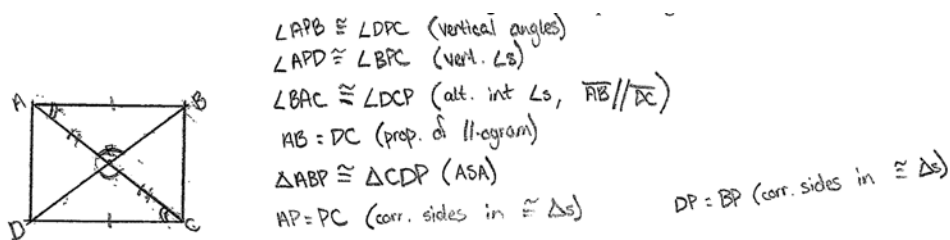 ∠APB ≅ ∠DPC (vertical angles)
∠APD ≅ ∠BPC (vert. ∠s)
∠BAC ≅ ∠DCP (alt. int ∠s, AB // DC)
AB = DC (prop. of //-ogram)
ΔABP ≅ ΔCDP (ASA)
AP = PC (corr. sides in ≅ Δs)
DP = BP (corr. sides in ≅ Δs)
A
B
D
C